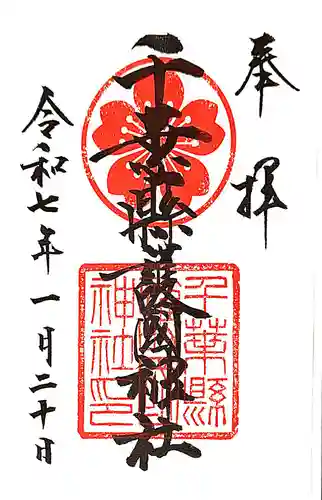 奉拝
千葉縣護國神社
千葉縣護國神社印
令和七年一月二十日